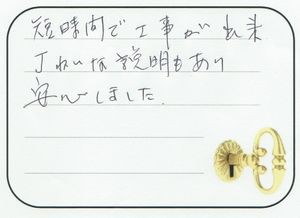 短時間で工事が出来
丁ねいな説明もあり
安心しました.